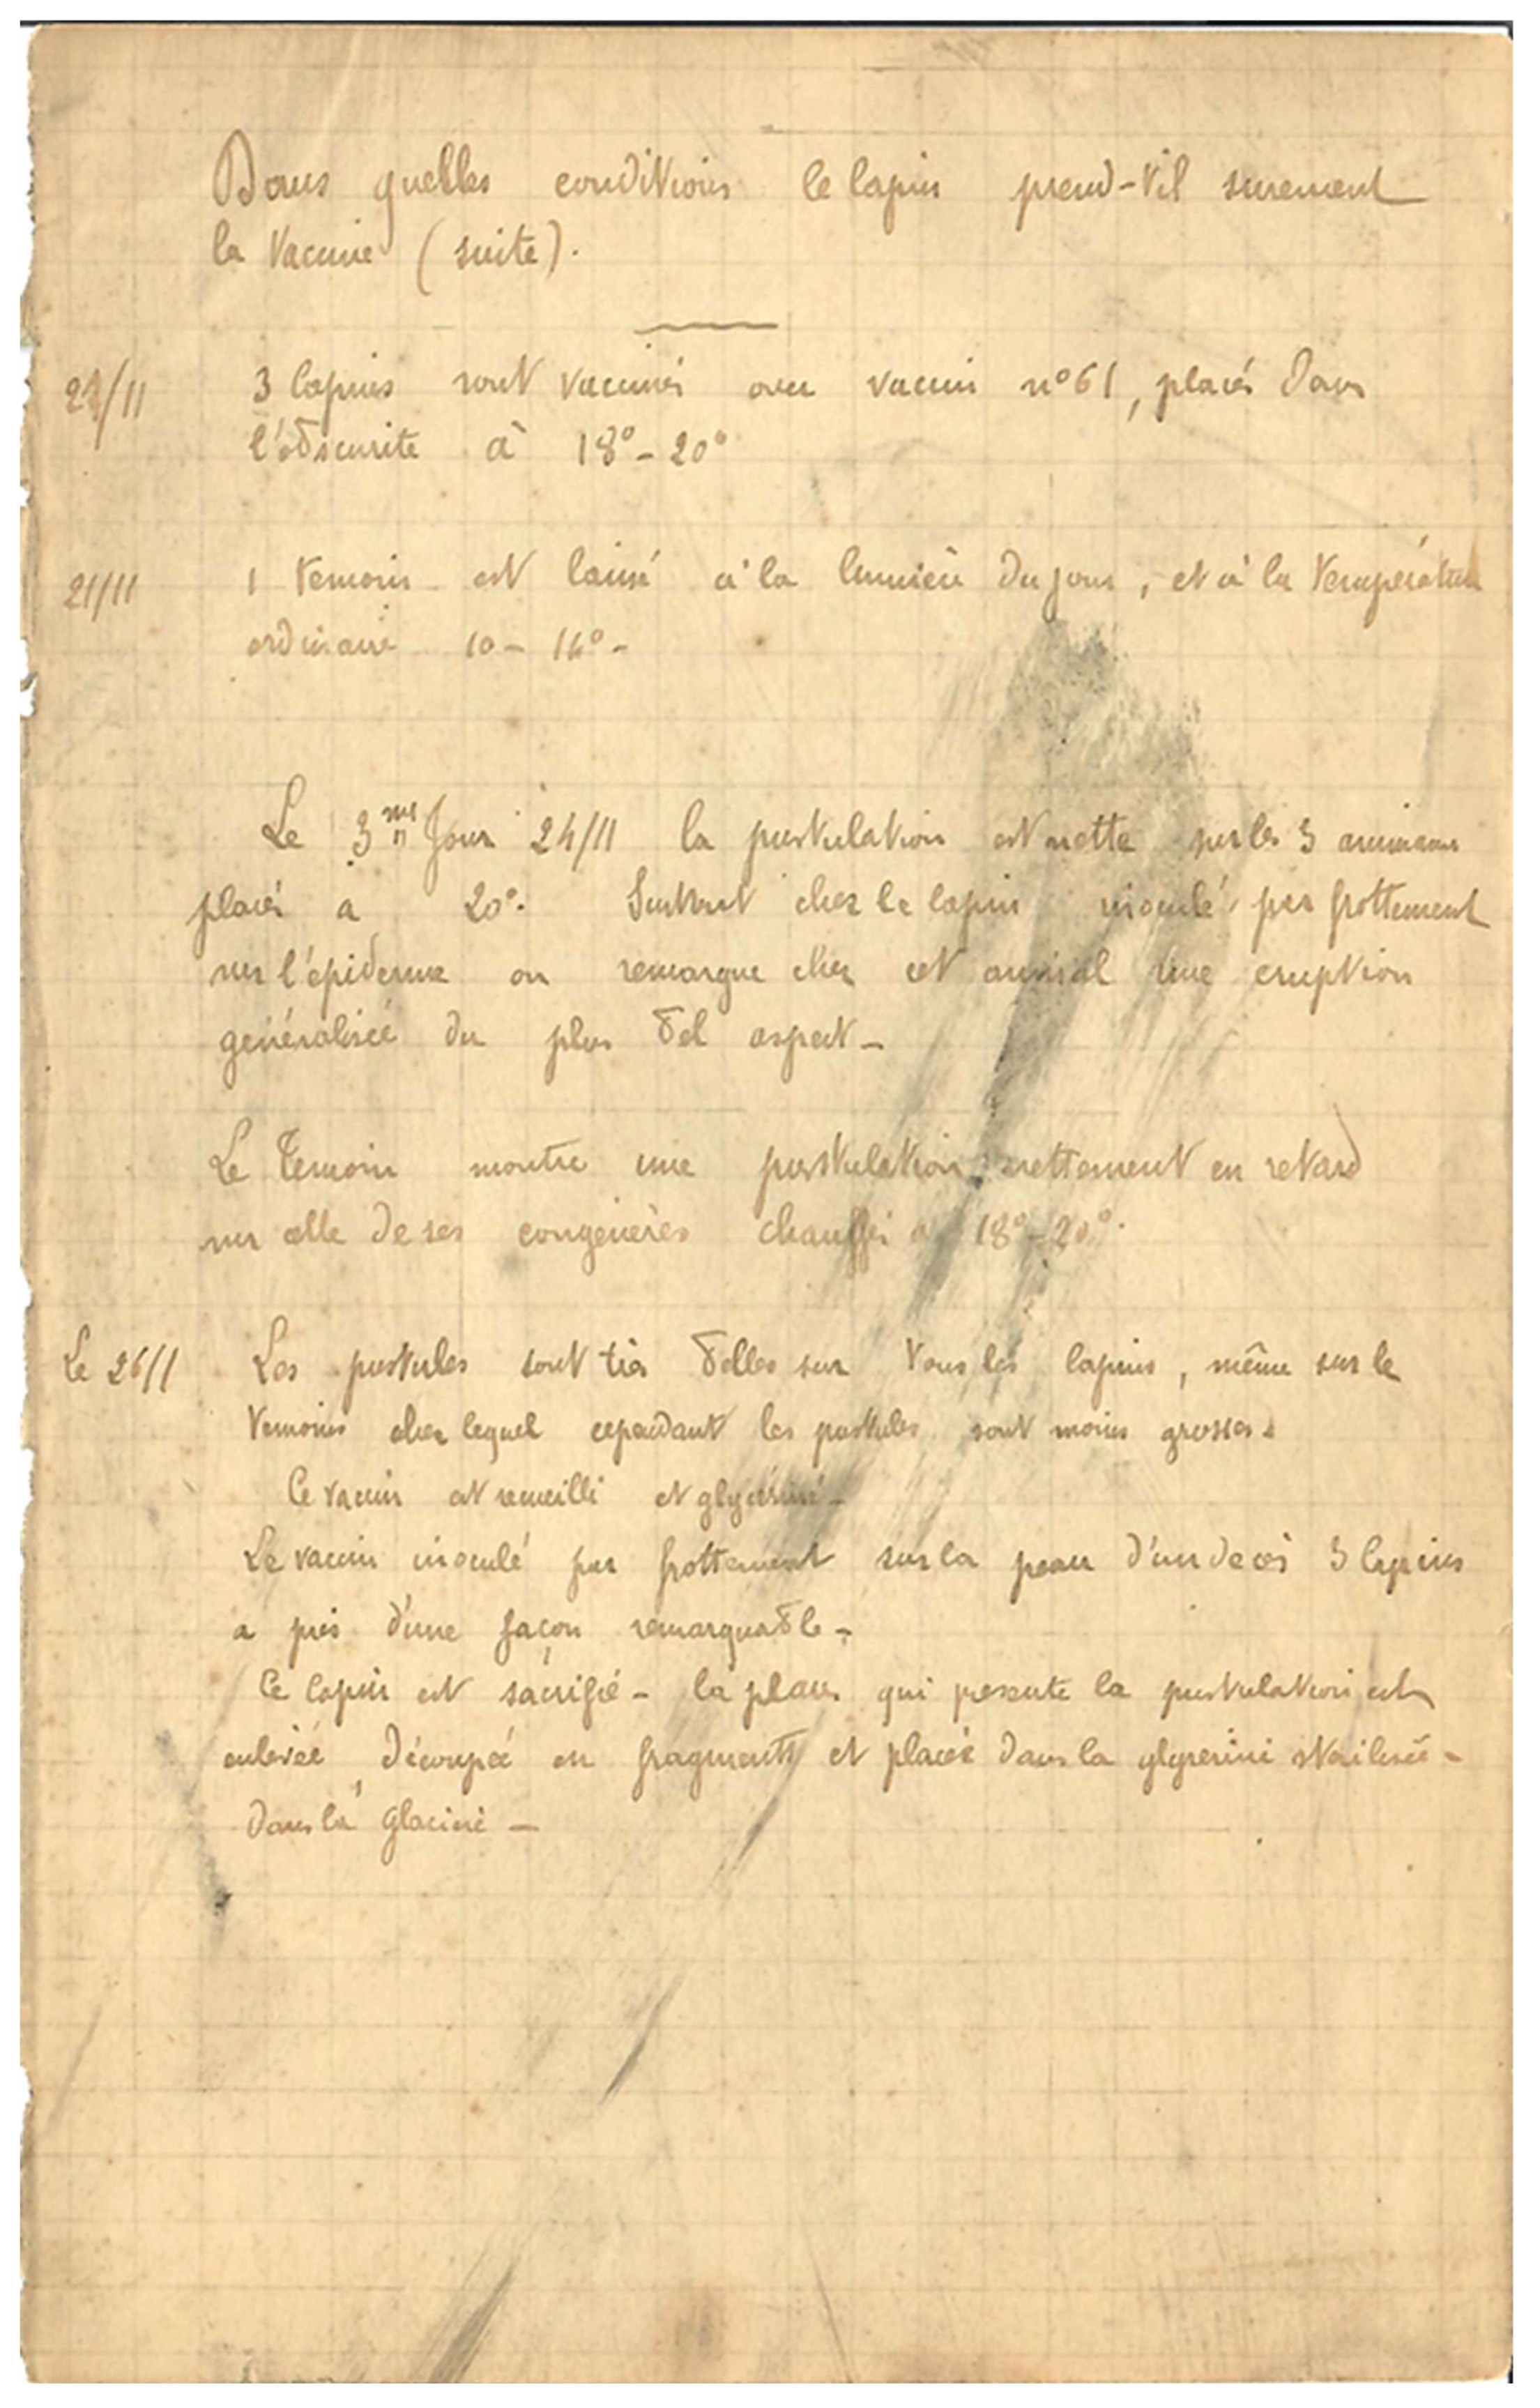 Dans quelles conditions le lapin prend-til surement
la Vaccine (suite).
21/11 3 lapins sont vaccinés avec vaccin n°61, placés dans
l'obscurite à 18°-20°
21/11 1 temoin est laissé à la lumière du jour, et à la temperature
ordinaire 10 - 14° -
Le 3me Jour 24/11 la pustulation est nette sur les 3 animaux
placés a 20°. Surtout chez le lapin inoculé par frottement
sur l'épiderme on remarque chez cet animal une eruption
généralisée du plus bel aspect -
Le temoin montre une pustulation nettement en retard
sur celle de ses congenères chauffés a 18°-20°.
Le 26/11 Les pustules sont très belles sur tous les lapins, même sur le
temoin chez lequel cependant les pustules sont moins grosses.
Ce vaccin est recueilli et glycériné -
Le vaccin inoculé par frottement sur la peau d'un de ces 3 lapins
a pris d'une façon remarquable -
Ce lapin est sacrifié - la place qui presente la pustulation est
enlevée, découpée en fragments et placée dans la glycerine sterilisée -
dans la glacière -